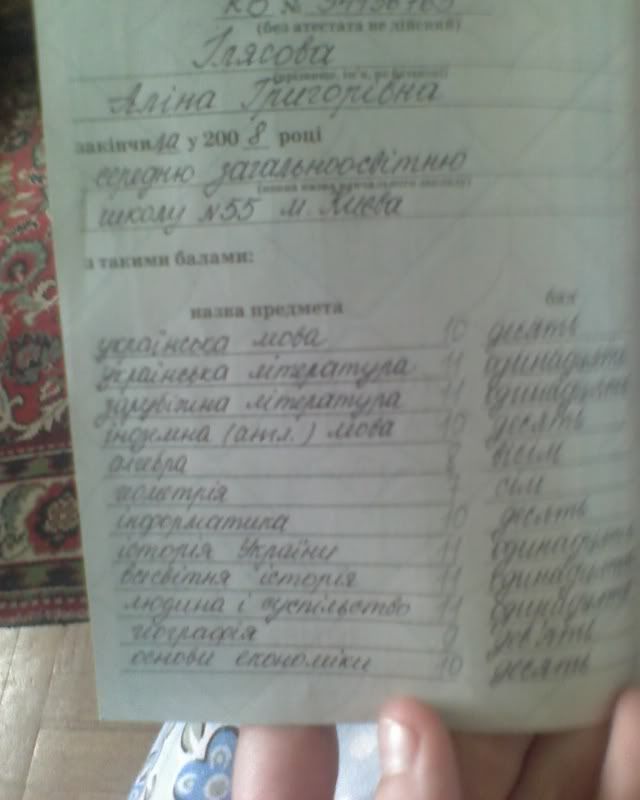 КВ №
(без атестата не дійсний)
Ілясова
Аліна Григорівна
закінчила у 2008 році
середню загальноосвітню
школу №55 м. Києва
з такими балами:
назва предмета бал
українська мова 10 десять
українська література 11 одинадцять
зарубіжна література 11 одинадцять
іноземна (англ.) мова 10 десять
алгебра 8 вісім
геометрія 7 сім
інформатика 10 десять
історія України 11 одинадцять
всесвітня історія 11 одинадцять
людина і суспільство 11 одинадцять
географія 9 дев'ять
основи економіки 10 десять